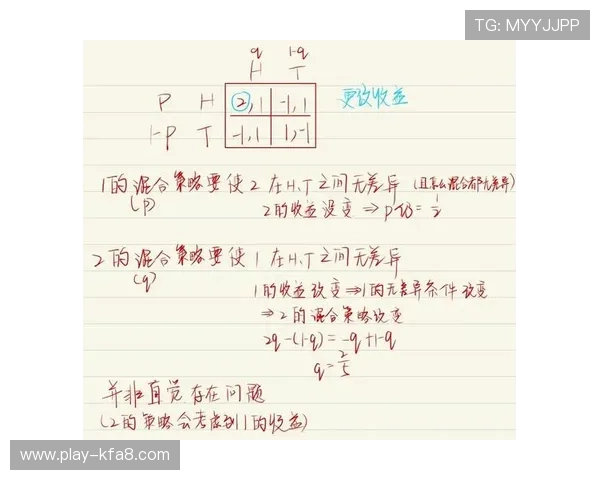 TG: MYYJJPP
q 1-q
H T
P H 2,1 -1,1 更改收益
1-P T -1,1 1,-1
1的混合策略要使2在H、T之间无差异 (且怎么混合都无差异)
(p) 2的收益没变 ⇒ p仍=1/2
2的混合策略要使1在H、T之间无差异
(q) 1的收益改变⇒1的无差异条件改变
⇒2的混合策略改变
2q-(1-q)=-q+1-q
q=2/5
并非直觉存在问题
(2的策略会考虑到1的收益)
www.play-kfa8.com